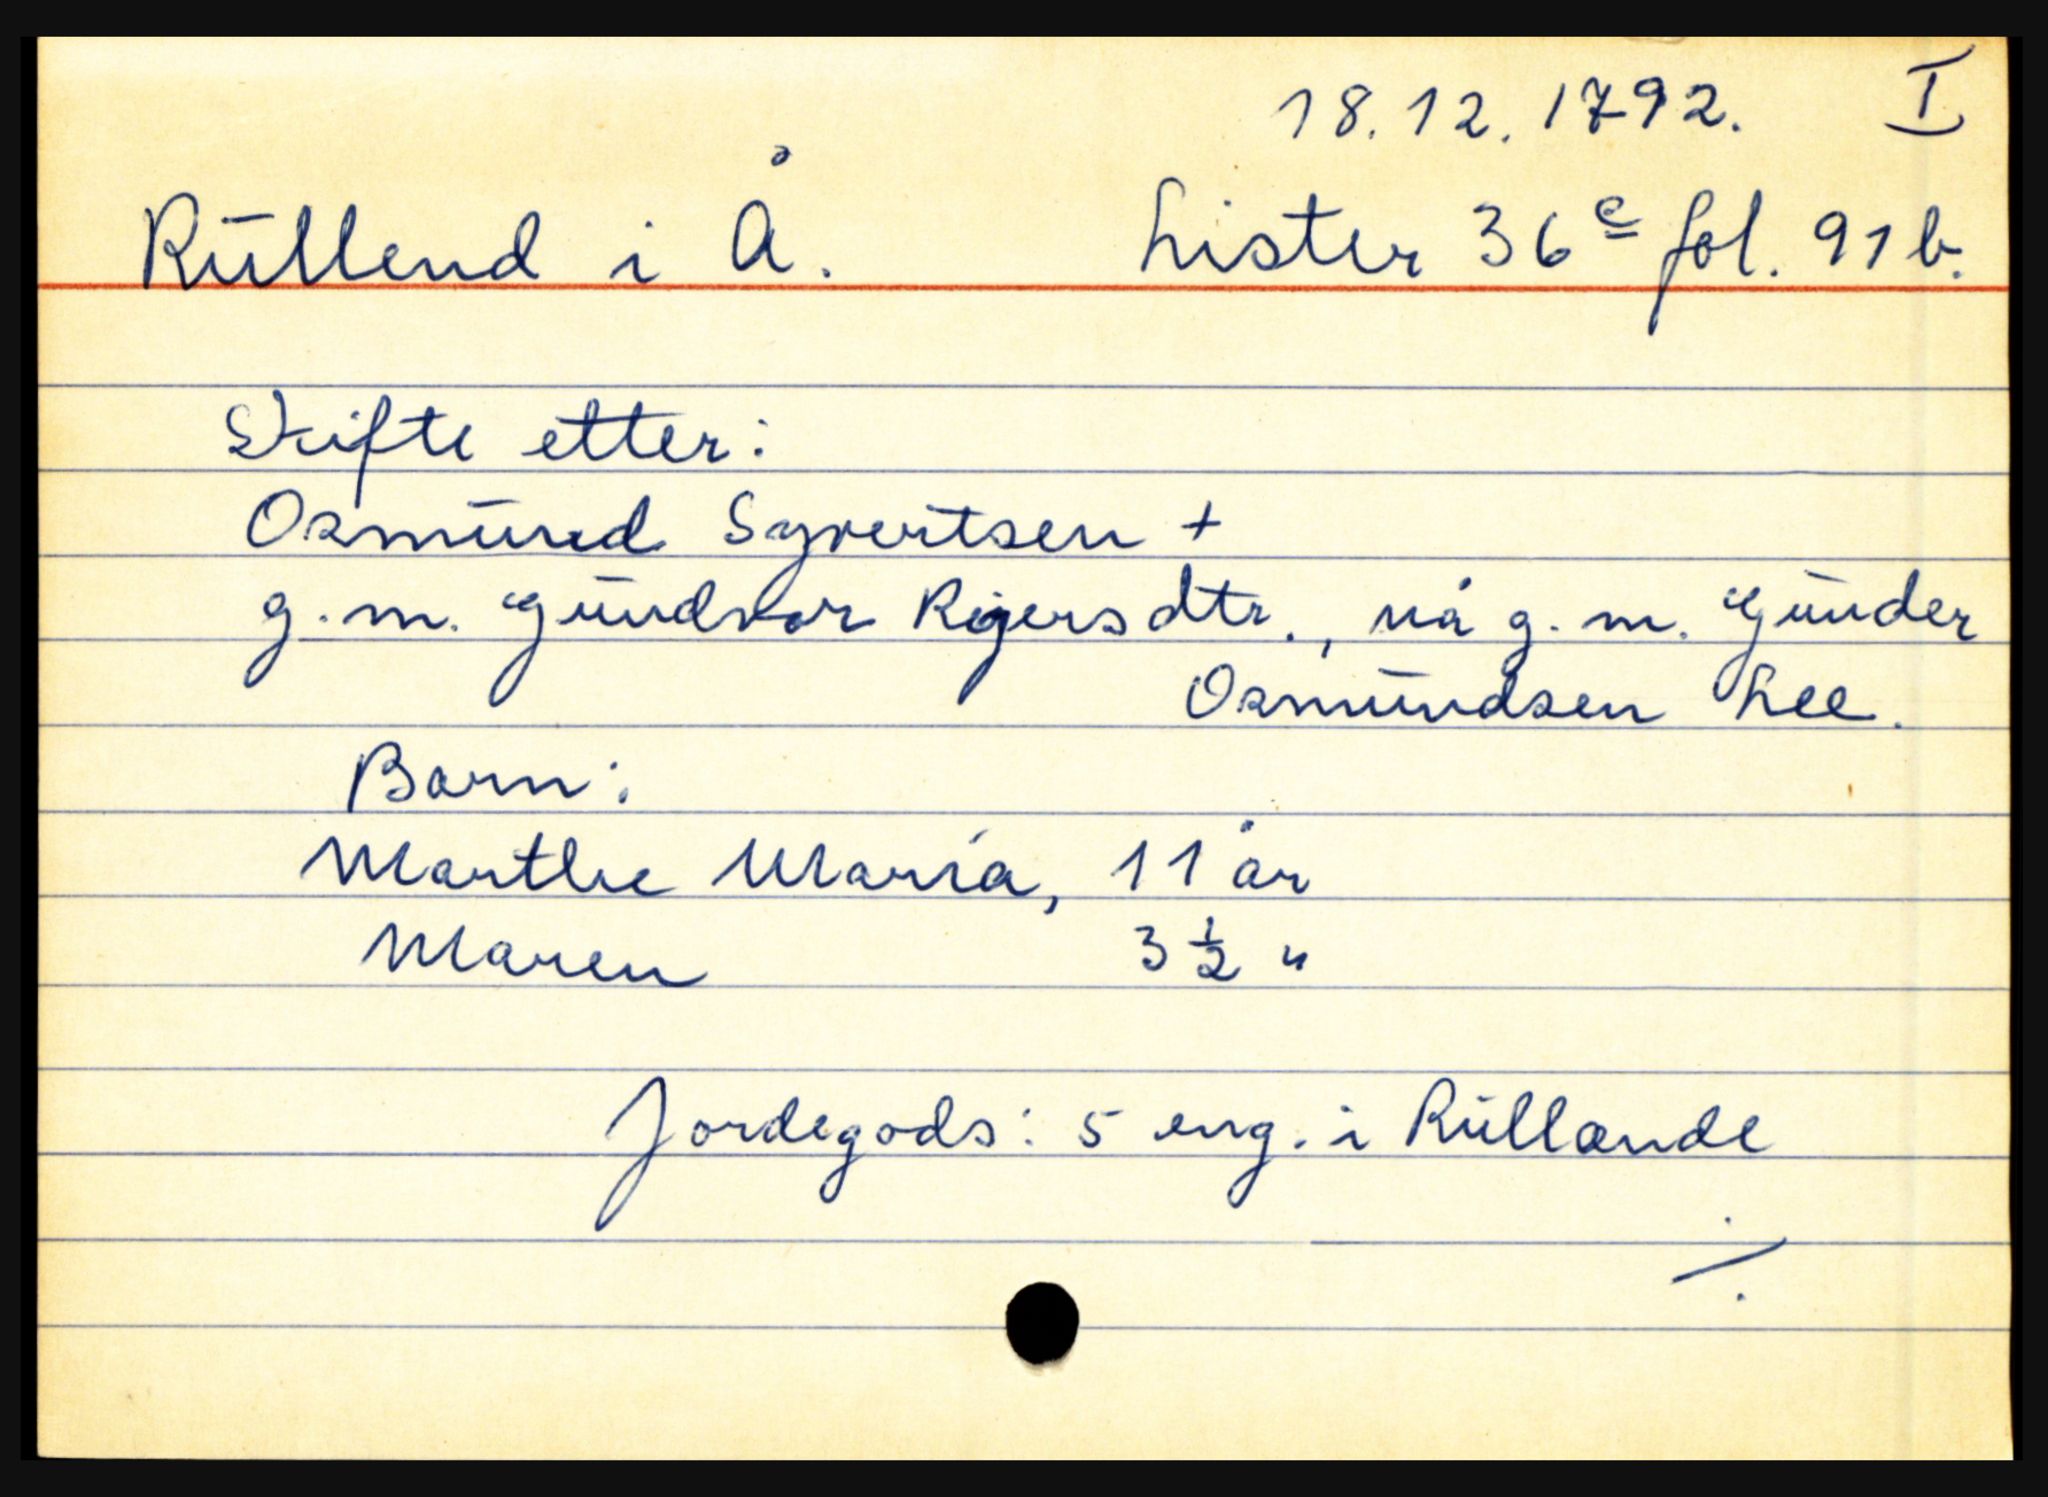 18.12.1792. I
Rullend i Å. Lister 36c fol. 91b.
Skifte etter:
Osmund Syvertsen +
g.m. Gundvor Reiersdtr., nå g.m. Gunder
Osmundsen Lee.
Barn:
Marthe Maria, 11 år
Maren 3 ½ "
Jordegods: 5 eng. i Rullande
./.